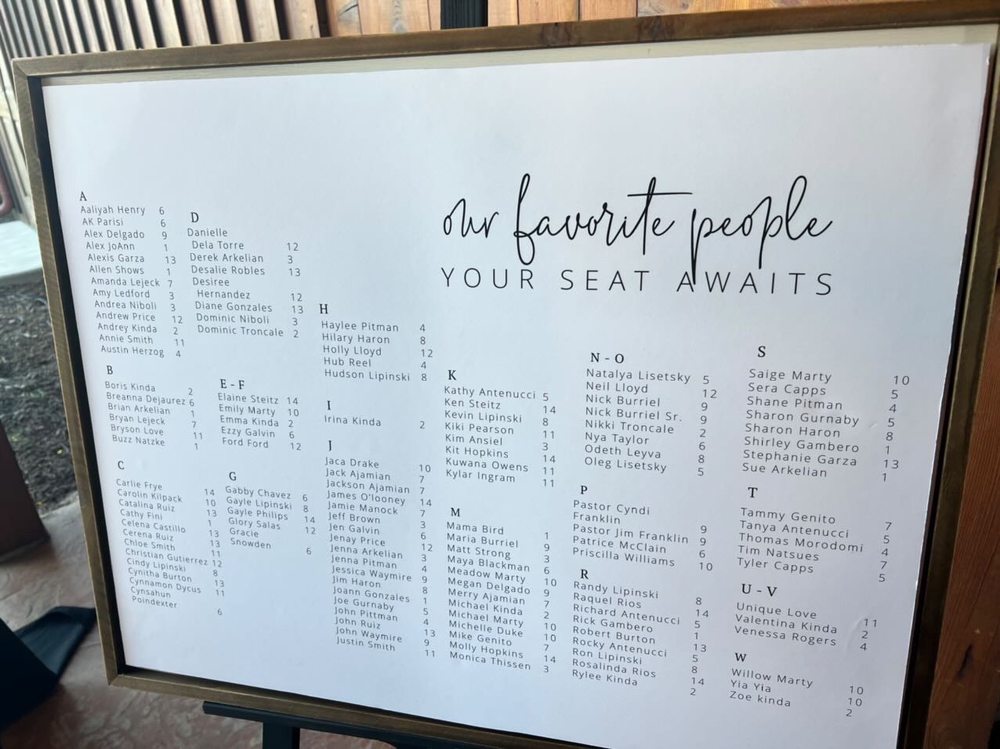 our favorite people
YOUR SEAT AWAITS
A
Aaliyah Henry 6
AK Parisi 6
Alex Delgado 9
Alex JoAnn 1
Alexis Garza 13
Allen Shows 1
Amanda Lejeck 7
Amy Ledford 3
Andrea Niboli 3
Andrew Price 12
Andrey Kinda 2
Annie Smith 11
Austin Herzog 4
B
Boris Kinda 2
Breanna Dejaurez 6
Brian Arkelian 1
Bryan Lejeck 7
Bryson Love 11
Buzz Natzke 1
C
Carlie Frye 14
Carolin Kilpack 10
Catalina Ruiz 13
Cathy Fini 1
Celena Castillo 13
Cerena Ruiz 13
Chloe Smith 11
Christian Gutierrez 12
Cindy Lipinski 8
Cynitha Burton 13
Cynnamon Dycus 11
Cynsahun
Poindexter 6
D
Danielle
Dela Torre 12
Derek Arkelian 3
Desalie Robles 13
Desiree
Hernandez 12
Diane Gonzales 13
Dominic Niboli 3
Dominic Troncale 2
E - F
Elaine Steitz 14
Emily Marty 10
Emma Kinda 2
Ezzy Galvin 6
Ford Ford 12
G
Gabby Chavez 6
Gayle Lipinski 8
Gayle Philips 14
Glory Salas 12
Gracie
Snowden 6
H
Haylee Pitman 4
Hilary Haron 8
Holly Lloyd 12
Hub Reel 4
Hudson Lipinski 8
I
Irina Kinda 2
J
Jaca Drake 10
Jack Ajamian 7
Jackson Ajamian 7
James O'looney 14
Jamie Manock 7
Jeff Brown 3
Jen Galvin 6
Jenay Price 12
Jenna Arkelian 3
Jenna Pitman 4
Jessica Waymire 9
Jim Haron 8
Joann Gonzales 1
Joe Gurnaby 5
John Pittman 4
John Ruiz 13
John Waymire 9
Justin Smith 11
K
Kathy Antenucci 5
Ken Steitz 14
Kevin Lipinski 8
Kiki Pearson 11
Kim Ansiel 3
Kit Hopkins 14
Kuwana Owens 11
Kylar Ingram 11
M
Mama Bird 1
Maria Burriel 9
Matt Strong 3
Maya Blackman 6
Meadow Marty 10
Megan Delgado 9
Merry Ajamian 7
Michael Kinda 2
Michael Marty 10
Michelle Duke 10
Mike Genito 7
Molly Hopkins 14
Monica Thissen 3
N - O
Natalya Lisetsky 5
Neil Lloyd 12
Nick Burriel 9
Nick Burriel Sr. 9
Nikki Troncale 2
Nya Taylor 6
Odeth Leyva 8
Oleg Lisetsky 5
P
Pastor Cyndi
Franklin 9
Pastor Jim Franklin 9
Patrice McClain 6
Priscilla Williams 10
R
Randy Lipinski 8
Raquel Rios 14
Richard Antenucci 5
Rick Gambero 1
Robert Burton 13
Rocky Antenucci 5
Ron Lipinski 8
Rosalinda Rios 14
Rylee Kinda 2
S
Saige Marty 10
Sera Capps 5
Shane Pitman 4
Sharon Gurnaby 5
Sharon Haron 8
Shirley Gambero 1
Stephanie Garza 13
Sue Arkelian 1
T
Tammy Genito 7
Tanya Antenucci 5
Thomas Morodomi 4
Tim Natsues 7
Tyler Capps 5
U - V
Unique Love 11
Valentina Kinda 2
Venessa Rogers 4
W
Willow Marty 10
Yia Yia 10
Zoe kinda 2